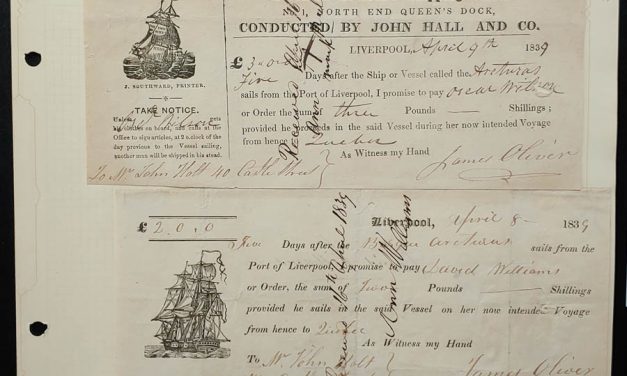 1, NORTH END QUEEN'S DOCK,
CONDUCTED BY JOHN HALL AND CO.
LIVERPOOL, April 9th 1839
£ 3
Five Days after the Ship or Vessel called the Arcturus
sails from the Port of Liverpool, I promise to pay Oscar Wilson
or Order the sum of three Pounds — Shillings;
provided he proceeds in the said Vessel during her now intended Voyage
from hence to Quebec
As Witness my Hand
James Oliver
To Mr John Holt 40 Castle Street
J. SOUTHWARD, PRINTER.
TAKE NOTICE.
Unless gets
on board, and calls at the
Office to sign articles, at 2 o'clock of the day
previous to the Vessel sailing,
another man will be shipped in his stead.
Received
Ann
£ 2.0.0
Liverpool, April 8 - 1839
Five Days after the Arcturus sails from the
Port of Liverpool I promise to pay David Williams
or Order, the sum of Two Pounds — Shillings
provided he sails in the said Vessel on her now intended Voyage
from hence to Quebec
As Witness my Hand
To Mr John Holt
James Oliver
Received 16th April 1839
Ann Williams